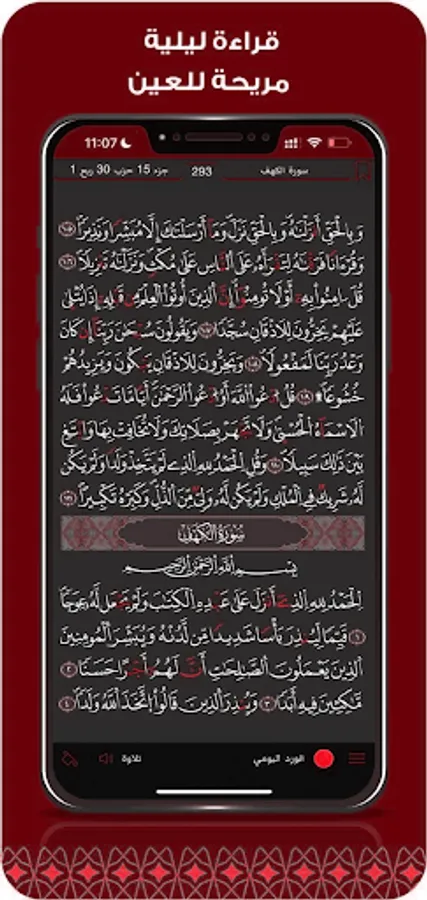 قراءة ليلية
مريحة للعين
11:07
سورة الكهف 293 جزء 15 حزب 30 ربع 1
وَبِالْحَقِّ أَنزَلْنَٰهُ وَبِالْحَقِّ نَزَلَ وَمَا أَرْسَلْنَٰكَ إِلَّا مُبَشِّرًا وَنَذِيرًا
وَقُرْءَانًا فَرَقْنَٰهُ لِتَقْرَأَهُ عَلَى النَّاسِ عَلَىٰ مُكْثٍ وَنَزَّلْنَٰهُ تَنزِيلًا
قُلَ ـٰامِنُوا بِهِ أَوْ لَا تُومِنُوا إِنَّ الَّذِينَ أُوتُوا الْعِلْمَ مِن قَبْلِهِ إِذَا يُتْلَىٰ
عَلَيْهِمْ يَخِرُّونَ لِلَاذْقَانِ سُجَّدًا وَيَقُولُونَ سُبْحَٰنَ رَبِّنَا إِن كَانَ
وَعْدُ رَبِّنَا لَمَفْعُولًا وَيَخِرُّونَ لِلَاذْقَانِ يَبْكُونَ وَيَزِيدُهُمْ
خُشُوعًا قُلُ ادْعُوا اللَّهَ أَوُ ادْعُوا الرَّحْمَٰنَ أَيًّا مَّا تَدْعُوا فَلَهُ
الَاسْمَاءُ الْحُسْنَىٰ وَلَا تَجْهَرْ بِصَلَاتِكَ وَلَا تُخَافِتْ بِهَا وَابْتَغِ
بَيْنَ ذَٰلِكَ سَبِيلًا وَقُلِ الْحَمْدُ لِلهِ الَّذِي لَمْ يَتَّخِذْ وَلَدًا وَلَمْ يَكُن
لَّهُ شَرِيكٌ فِي الْمُلْكِ وَلَمْ يَكُن لَّهُ وَلِيٌّ مِّنَ الذُّلِّ وَكَبِّرْهُ تَكْبِيرًا
سُورَةُ الْكَهْفِ
بِسْمِ اللَّهِ الرَّحْمَٰنِ الرَّحِيمِ
الْحَمْدُ لِلهِ الَّذِي أَنزَلَ عَلَىٰ عَبْدِهِ الْكِتَٰبَ وَلَمْ يَجْعَل لَّهُ عِوَجًا
١ قَيِّمًا لِّيُنذِرَ بَأْسًا شَدِيدًا مِّن لَّدُنْهُ وَيُبَشِّرَ الْمُومِنِينَ
الَّذِينَ يَعْمَلُونَ الصَّٰلِحَٰتِ أَنَّ لَهُمْ أَجْرًا حَسَنًا ٢
مَّٰكِثِينَ فِيهِ أَبَدًا ٣ وَيُنذِرَ الَّذِينَ قَالُوا اتَّخَذَ اللَّهُ وَلَدًا ٤
الورد اليومي تلاوة